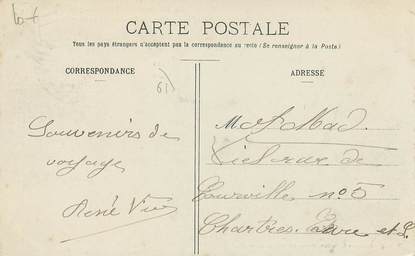 CARTE POSTALE
Tous les pays étrangers n'acceptent pas la correspondance au recto (Se renseigner à la Poste)
CORRESPONDANCE
ADRESSE
61
Souvenirs de
voyage
René
M et Mad.
rue de
Tourville no 5
Chartres. Eure et L.